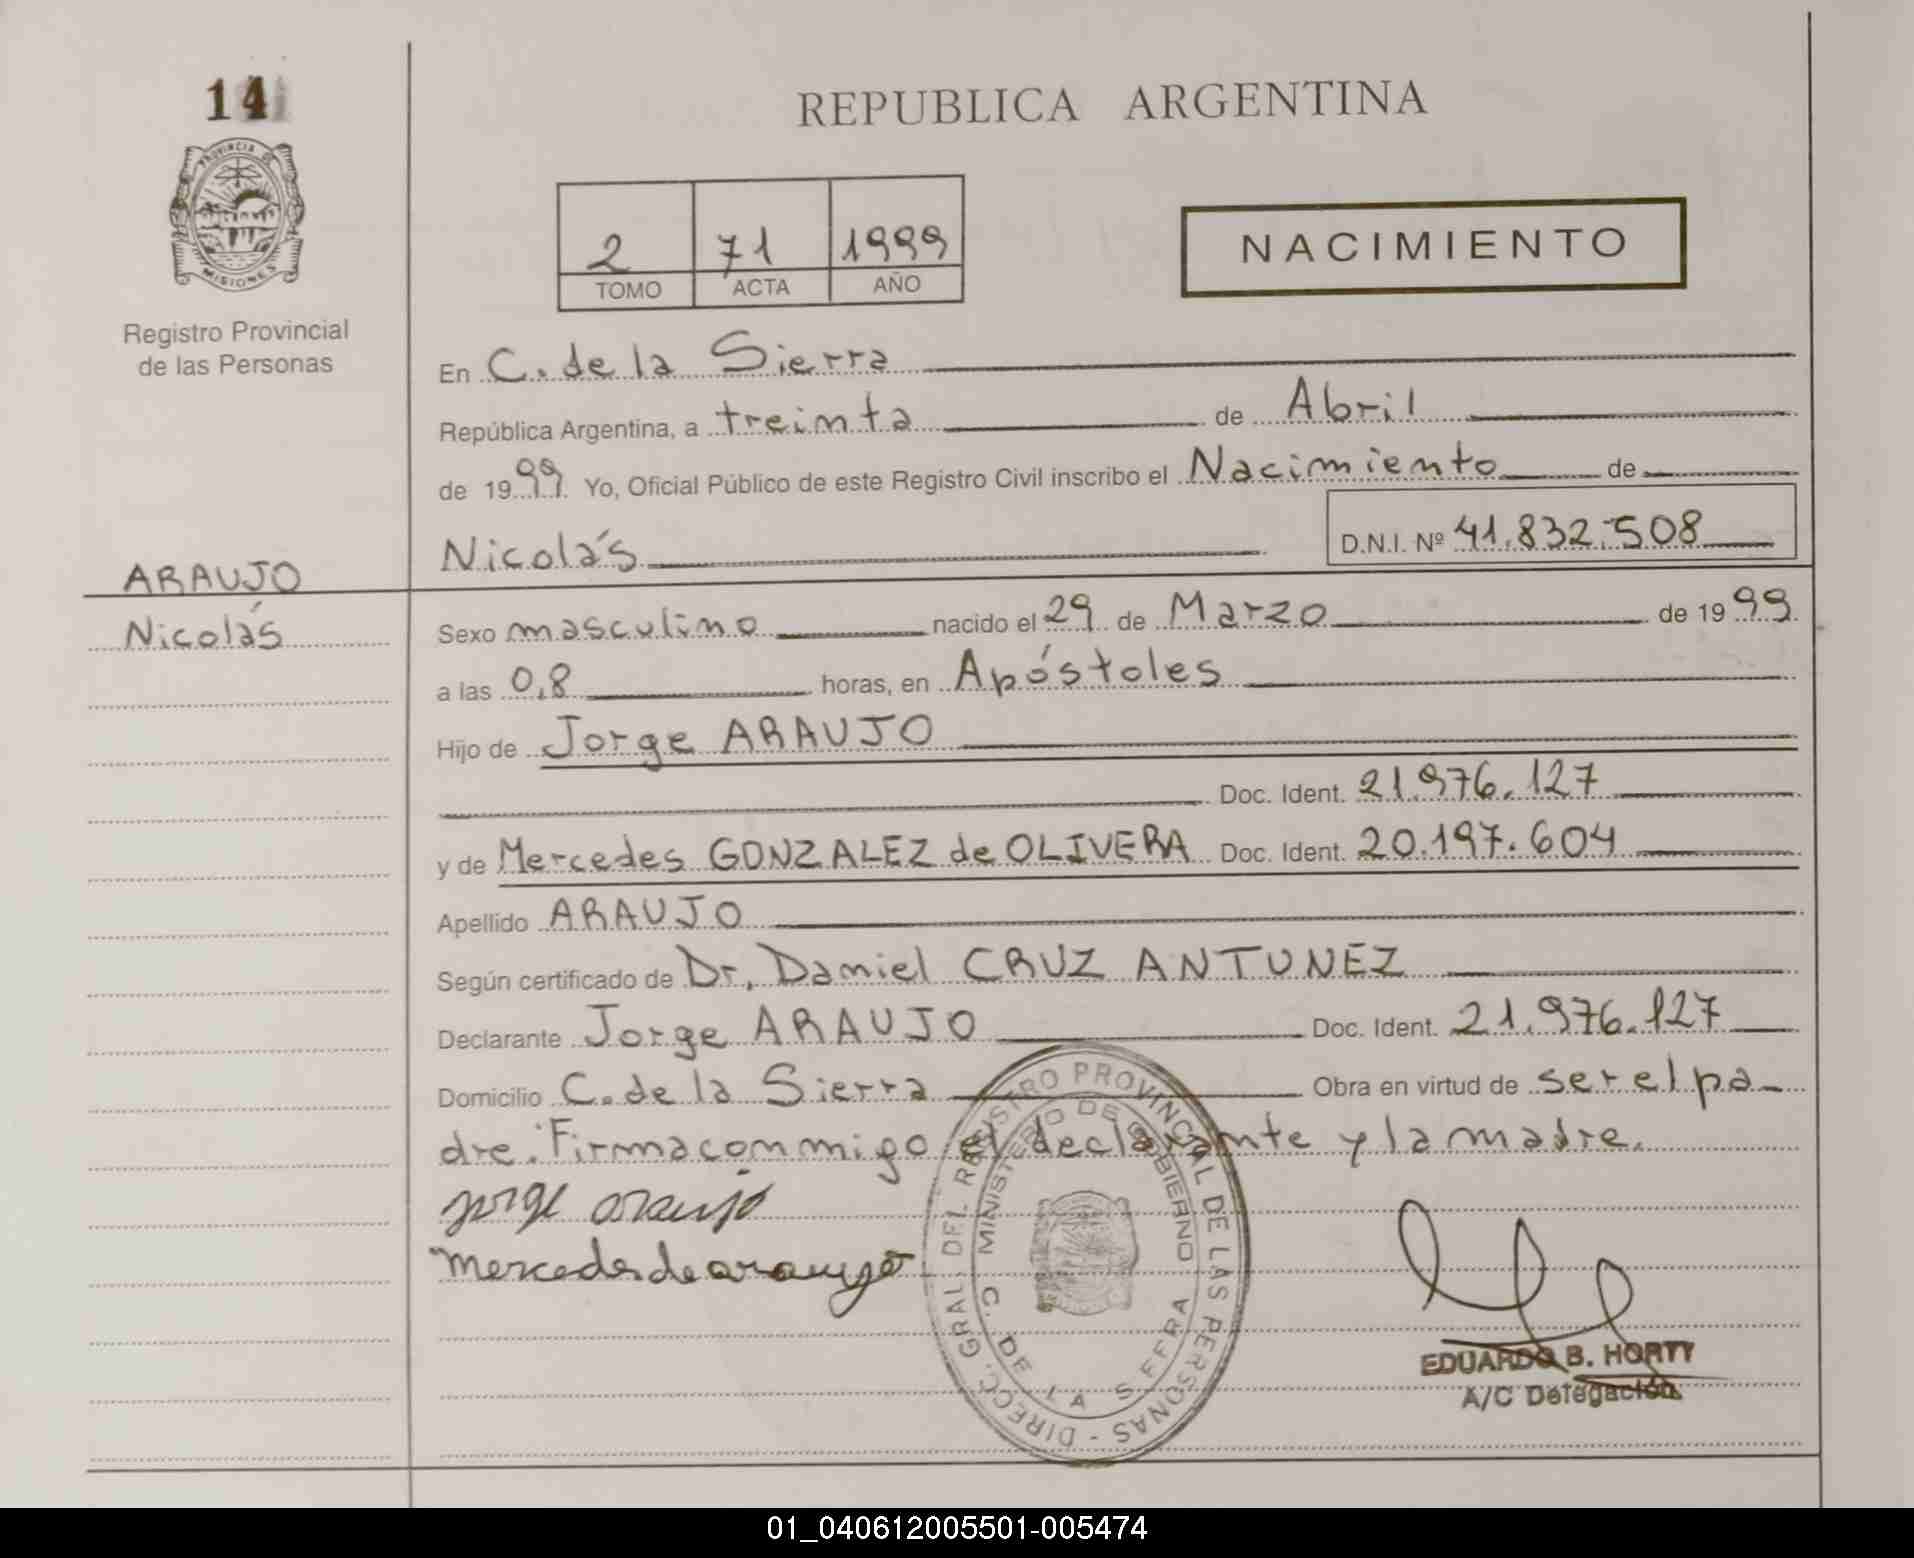 14
PROVINCIA DE
MISIONES
Registro Provincial
de las Personas
REPUBLICA ARGENTINA
2 71 1999
TOMO ACTA AÑO
NACIMIENTO
En C. de la Sierra
República Argentina, a treinta de Abril
de 1999 Yo, Oficial Público de este Registro Civil inscribo el Nacimiento de
Nicolás D.N.I. Nº 41.832.508
ARAUJO
Nicolás
Sexo masculino nacido el 29 de Marzo de 1999
a las 0,8 horas, en Apóstoles
Hijo de Jorge ARAUJO
Doc. Ident. 21.976.127
y de Mercedes GONZALEZ de OLIVERA Doc. Ident. 20.197.604
Apellido ARAUJO
Según certificado de Dr. Daniel CRUZ ANTUNEZ
Declarante Jorge ARAUJO Doc. Ident. 21.976.127
Domicilio C. de la Sierra Obra en virtud de ser el pa-
dre. Firma conmigo el declarante y la madre.
jorge araujo
mercedes de araujo
DIRECC. GRAL. DEL REGISTRO PROVINCIAL DE LAS PERSONAS -
MINISTERIO DE GOBIERNO
C. DE LA SIERRA
EDUARDO B. HORTT
A/C Delegación
01_040612005501-005474